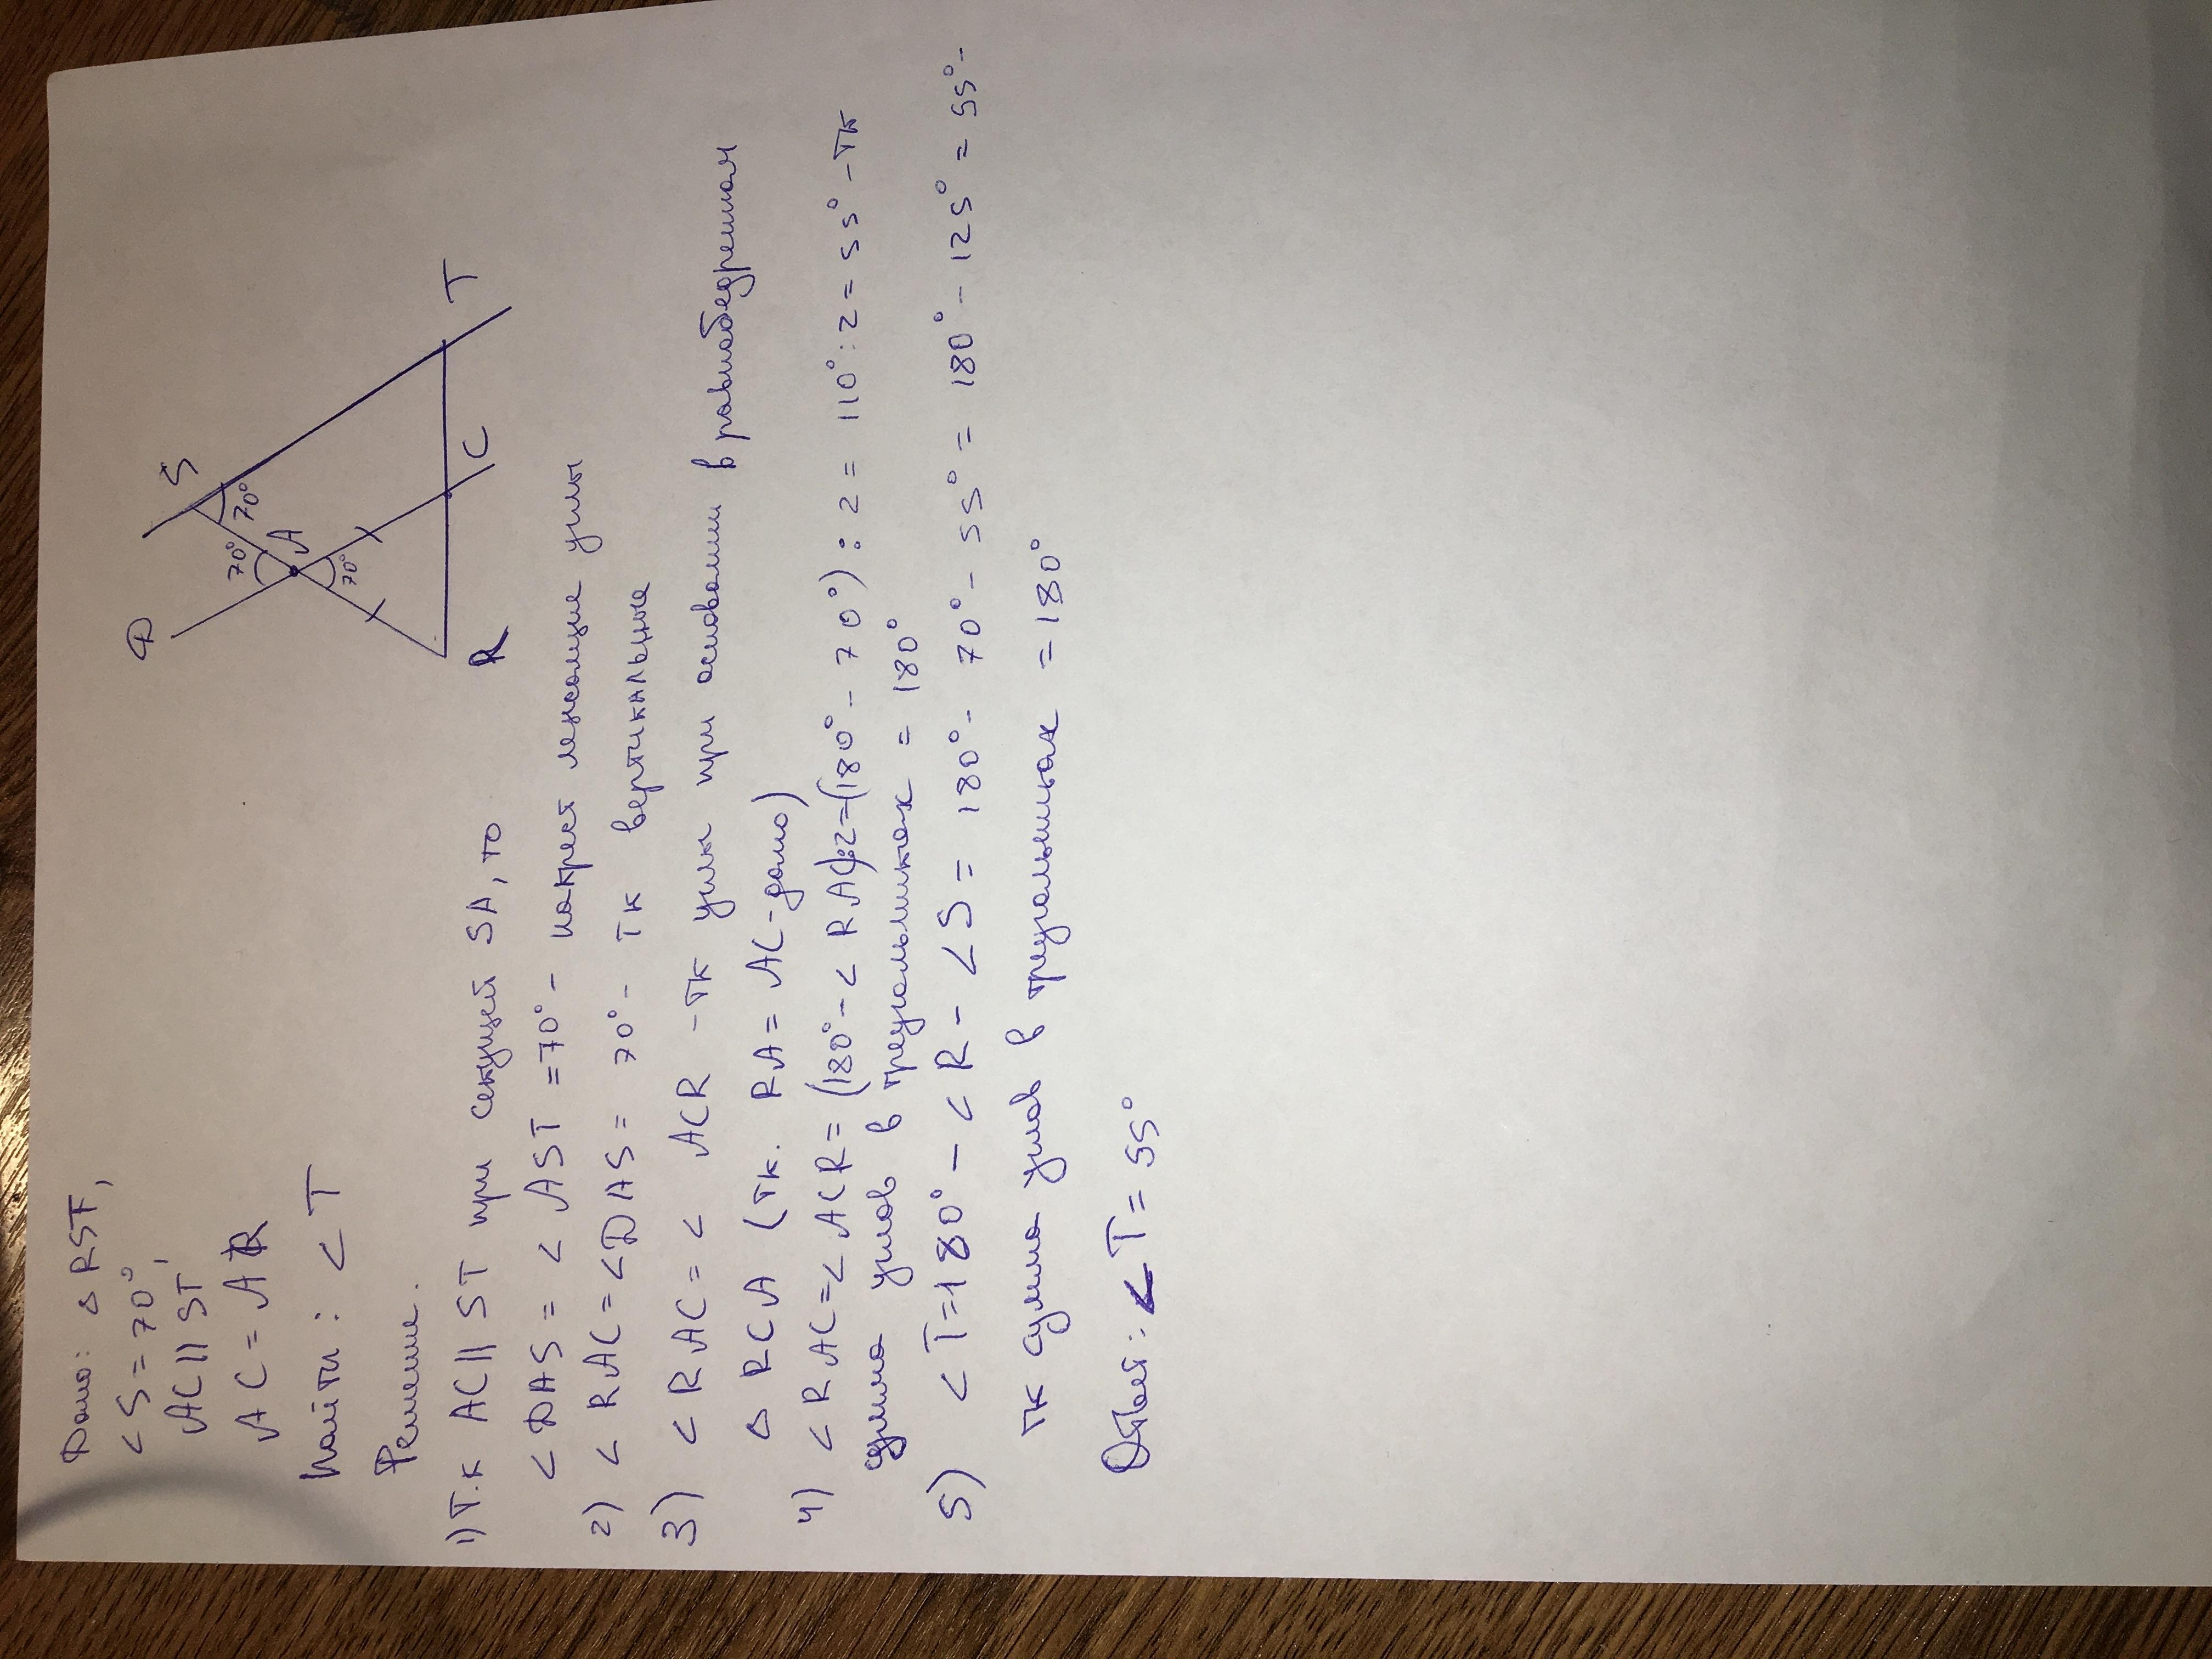 Дано: △ RST,
∠S = 70°,
AC || ST,
AC = AR
Найти: ∠T
D
S
70°
70°
A
70°
R
C
T
Решение.
1) Т.к AC || ST при секущей SA, то
∠DAS = ∠AST = 70° - накрест лежащие углы
2) ∠RAC = ∠DAS = 70° - тк вертикальные
3) ∠RAC = ∠ACR - тк углы при основании в равнобедренном
△ RCA (тк. RA = AC - дано)
4) ∠RAC = ∠ACR = (180° - ∠RAC):2 = (180° - 70°) : 2 = 110° : 2 = 55° - тк
сумма углов в треугольниках = 180°
5) ∠T = 180° - ∠R - ∠S = 180° - 70° - 55° = 180° - 125° = 55° -
тк сумма углов в треугольниках = 180°
Ответ: ∠T = 55°